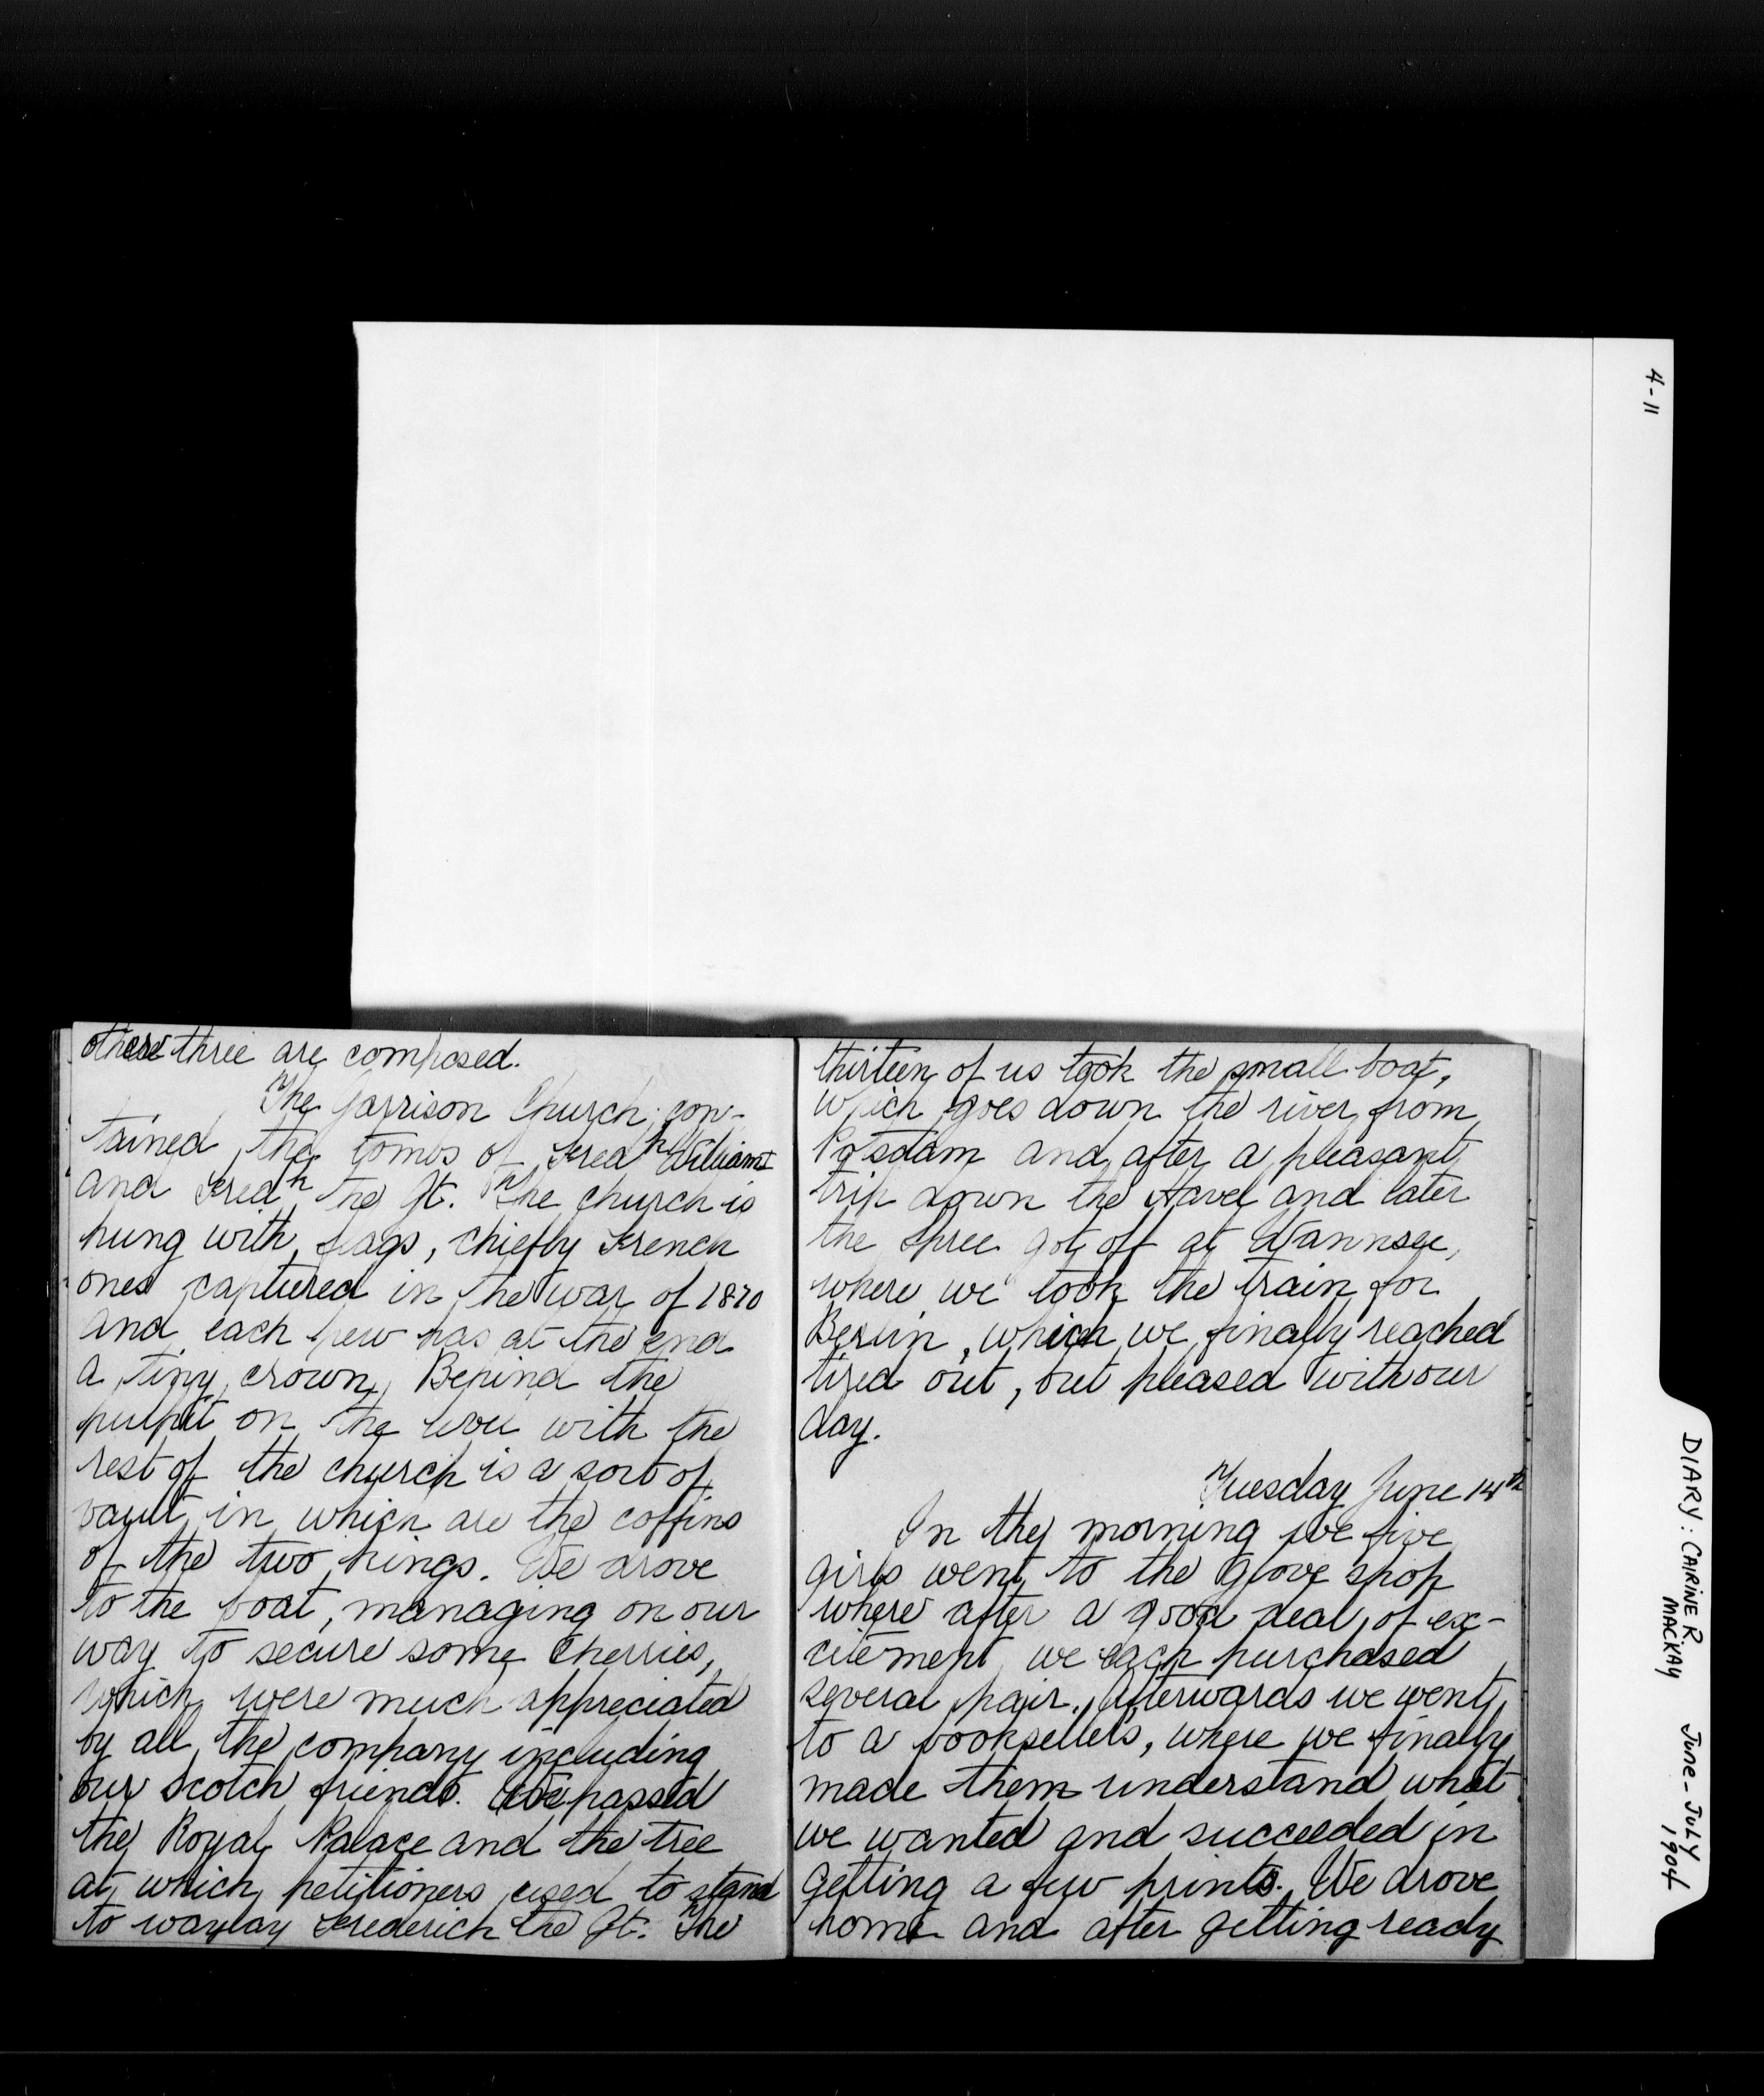 others three are composed.
The Garrison Church, con-
tained the tombs of Fredh William I
and Fredh the Gt. The church is
hung with flags, chiefly French
ones captured in the war of 1870
and each pew has at the end
a tiny crown. Behind the
pulpit on the level with the
rest of the church is a sort of
vault in which are the coffins
of the two kings. We drove
to the boat, managing on our
way to secure some cherries,
which were much appreciated
by all the company including
our Scotch friends. We passed
the Royal Palace and the tree
at which petitioners used to stand
to waylay Frederich the Gt. The
thirteen of us took the small boat,
which goes down the river from
Potsdam and after a pleasant
trip down the Havel and later
the Spree got off at Wannsee,
where we took the train for
Berlin, which we finally reached
tired out, but pleased with our
day.
Tuesday June 14th
In the morning we five
girls went to the glove shop
where after a good deal of ex-
citement we each purchased
several pair. Afterwards we went
to a booksellers, where we finally
made them understand what
we wanted and succeeded in
getting a few prints. We drove
home and after getting ready
4-11
DIARY: CAIRINE R. MACKAY
June - July 1904